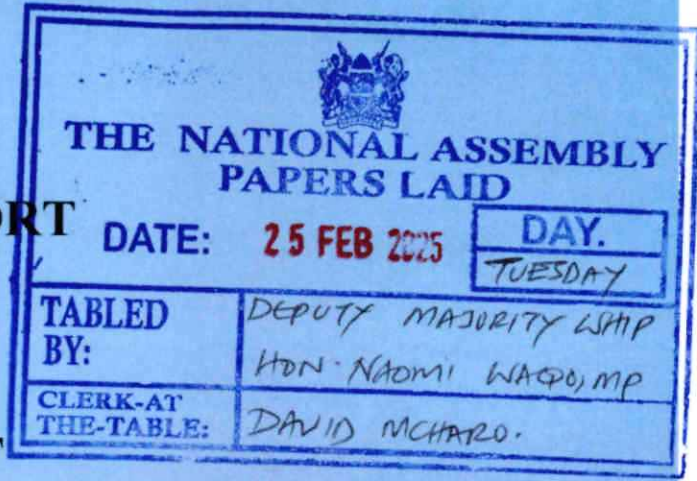 THE NATIONAL ASSEMBLY
PAPERS LAID
DATE: 25 FEB 2025
DAY.
TUESDAY
TABLED
BY:
DEPUTY MAJORITY WHIP
HON. NAOMI WAQO, MP
CLERK-AT
THE-TABLE:
DAVID MCHARO.